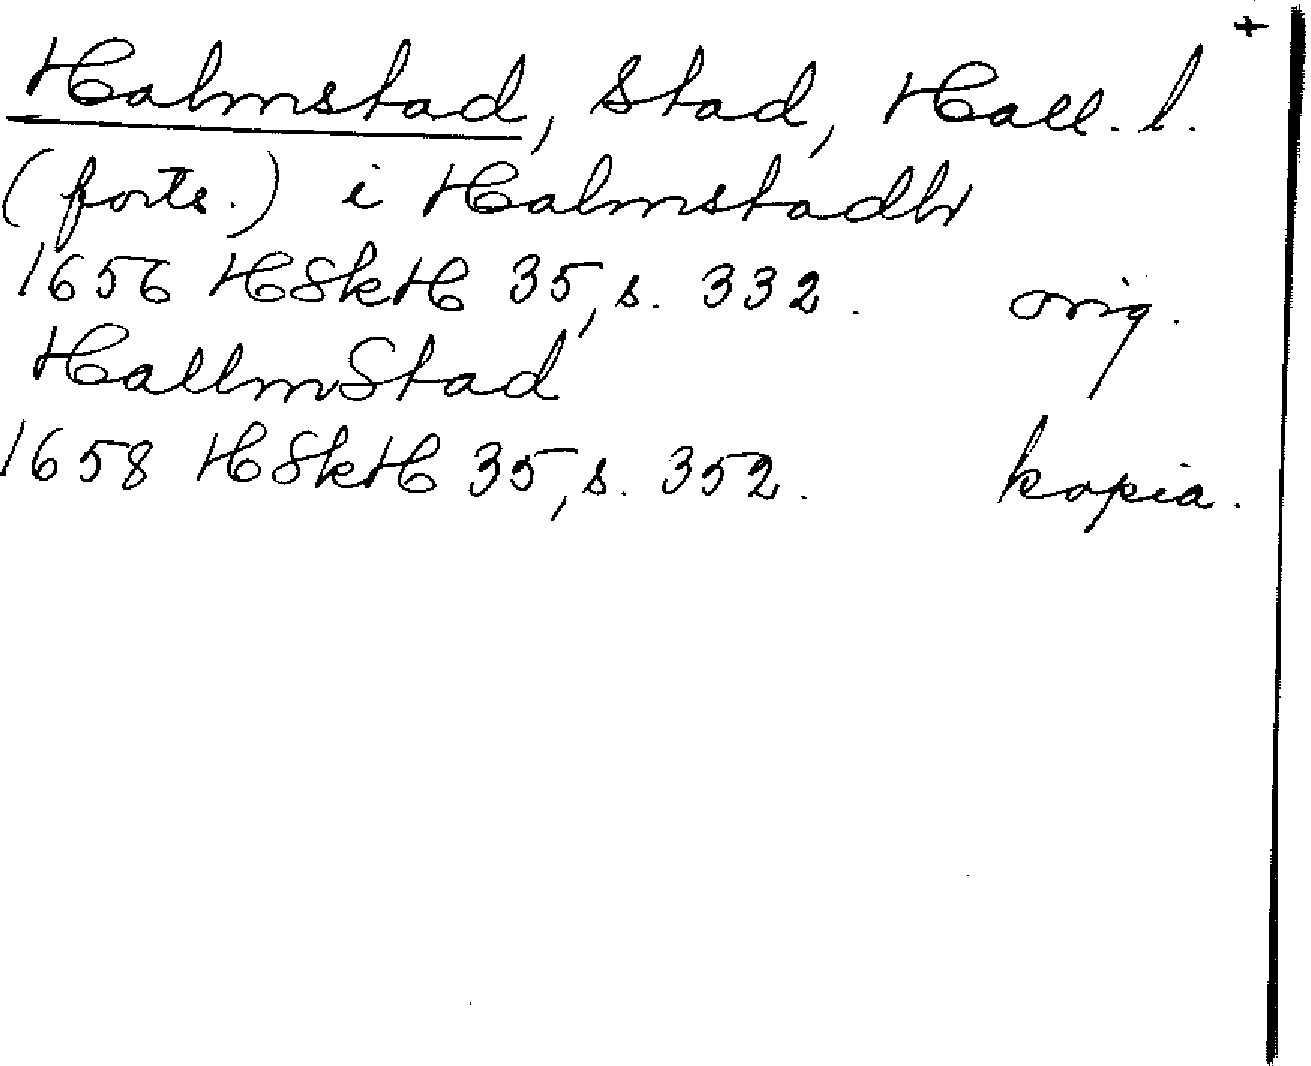 +
Halmstad, Stad, Hall. l.
(forts.) i Halmstadh
1656 HSkH 35, s. 332. orig.
HallmStad
1658 HSkH 35, s. 352. kopia.